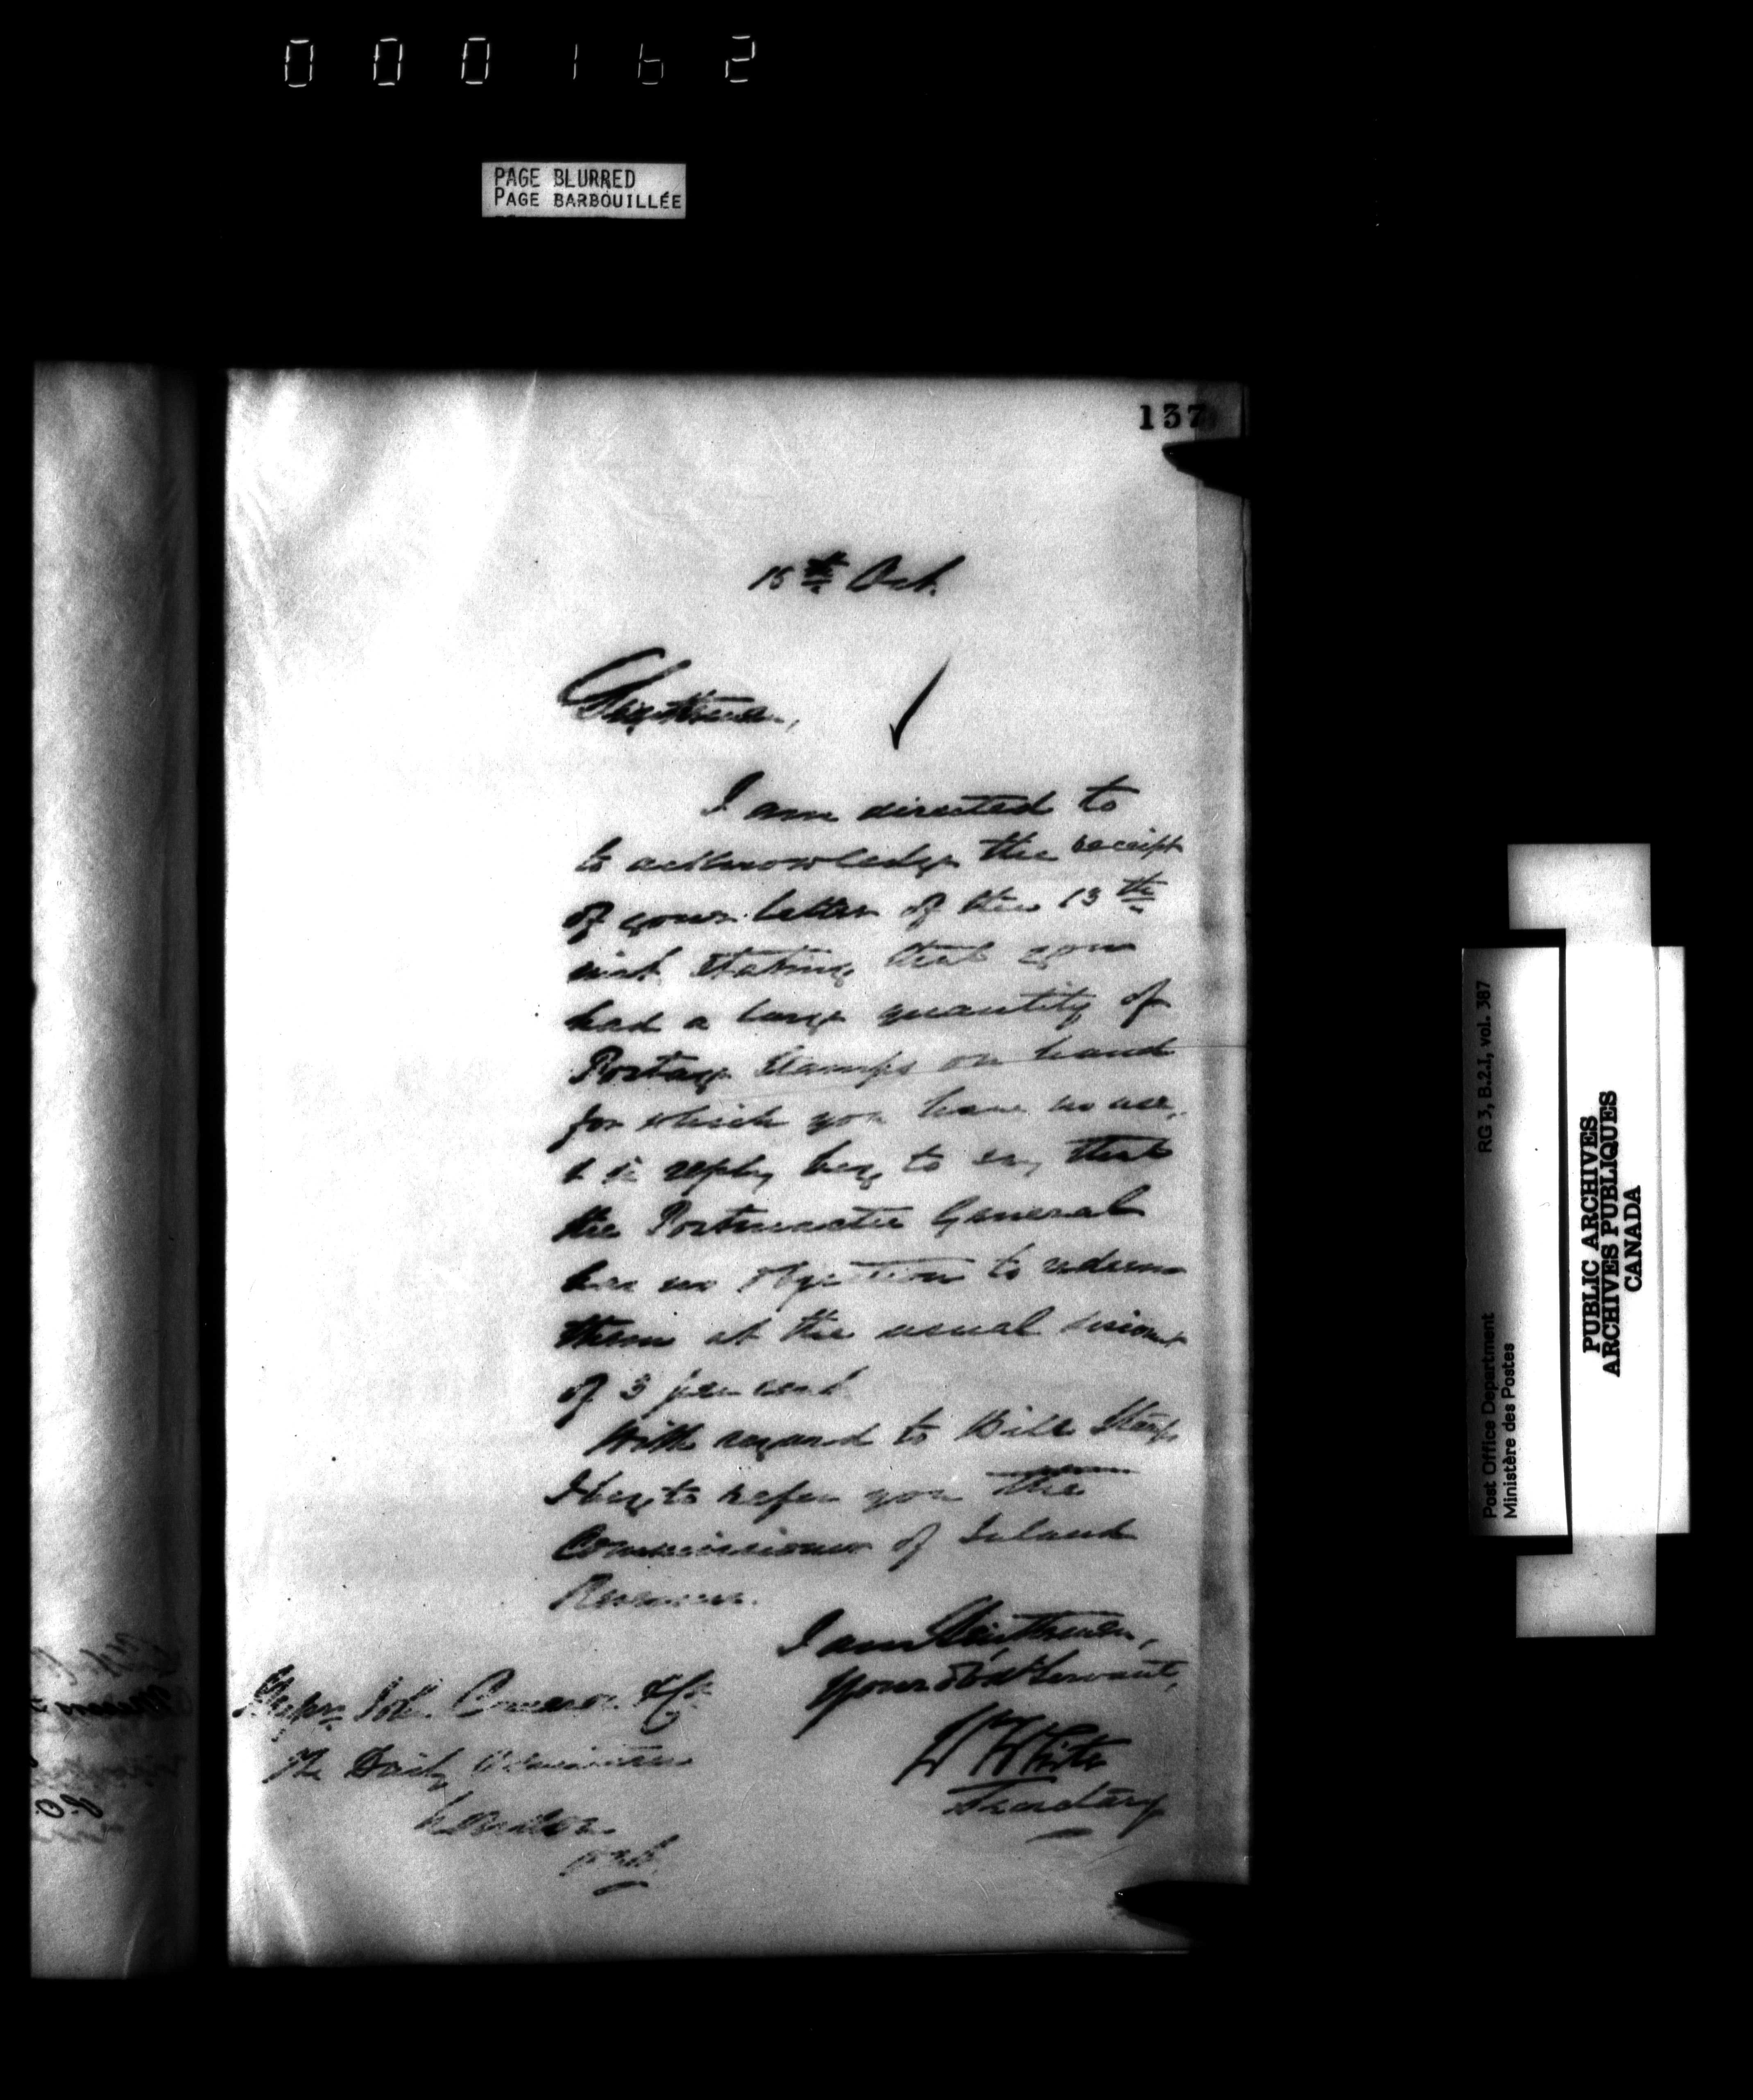 000162
PAGE BLURRED
PAGE BARBOUILLÉE
137
15th Oct.
Gentlemen,
I am directed to
to acknowledge the receipt
of your letter of the 13th
inst. stating that you
had a large quantity of
Postage Stamps on hand
for which you have no use,
& in reply beg to say that
the Postmaster General
has no objection to redeem
them at the usual discount
of 3 per cent.
With regard to Bill Stamps
I beg to refer you the
Commissioner of Inland
Revenue.
I am Gentlemen,
Your Obdt Servant,
W White
Secretary
Messrs John Cameron & Co.
The Daily Advertiser
London
Ont.
RG 3, B.2.I, vol. 387
Post Office Department
Ministère des Postes
PUBLIC ARCHIVES
ARCHIVES PUBLIQUES
CANADA